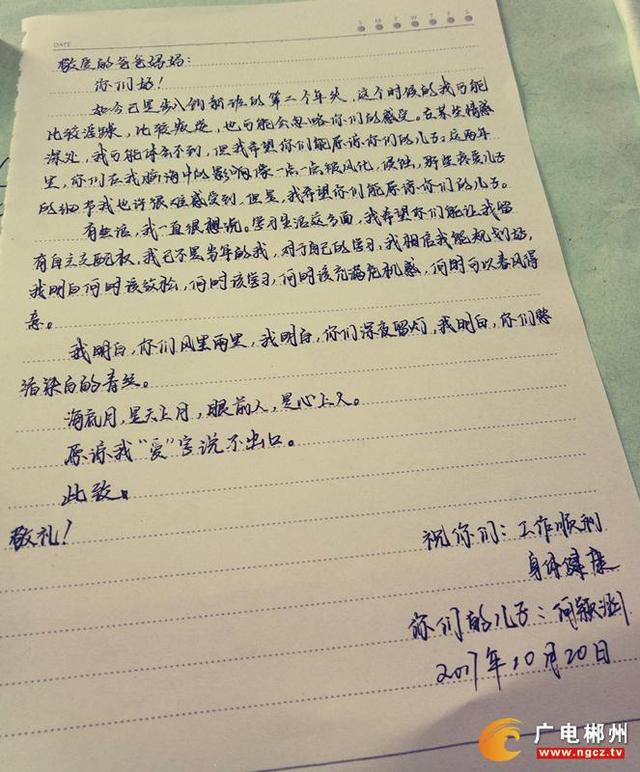 DATE
S M T W T F S
敬爱的爸爸妈妈：
你们好！
如今已是步入创新班的第二个年头，这个时候的我可能
比较浮躁，比较叛逆，也可能会忽略你们的感受。在某些情感
深处，我可能体会不到，但我希望你们能原谅你们的儿子；这两年
里，你们在我脑海中的影响像一点一点被风化，侵蚀，那些丧失儿子
的细节我也许很难感受到，但是，我希望你们能原谅你们的儿子。
有些话，我一直很想说。学习生活这方面，我希望你们能让我留
有自主支配权，我已不是当年的我，对于自己的学习，我相信我能规划好，
我明白何时该放松，何时该学习，何时该充满危机感，何时可以春风得
意。
我明白，你们风里雨里，我明白，你们深夜留灯，我明白，你们愁
白的青丝。
海底月，是天上月，眼前人，是心上人。
原谅我“爱”字说不出口。
此致。
敬礼！
祝你们：工作顺利
身体健康
你们的儿子：何颖
2017年10月20日
广电郴州
www.ngcz.tv